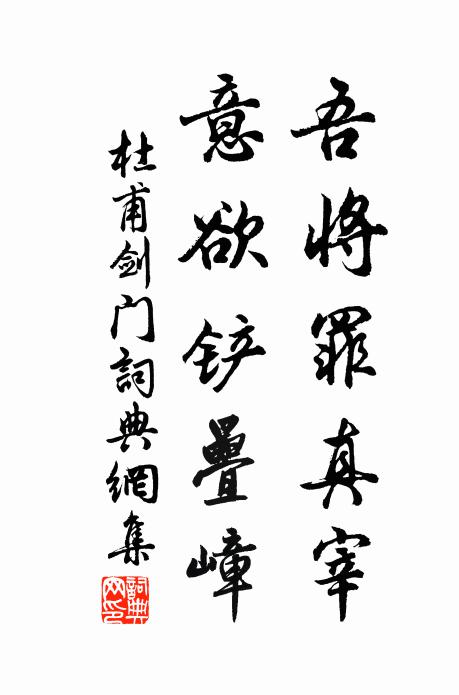 吾將罪真宰
意欲铲疊嶂
杜甫劍门詞典網集
詞典网印